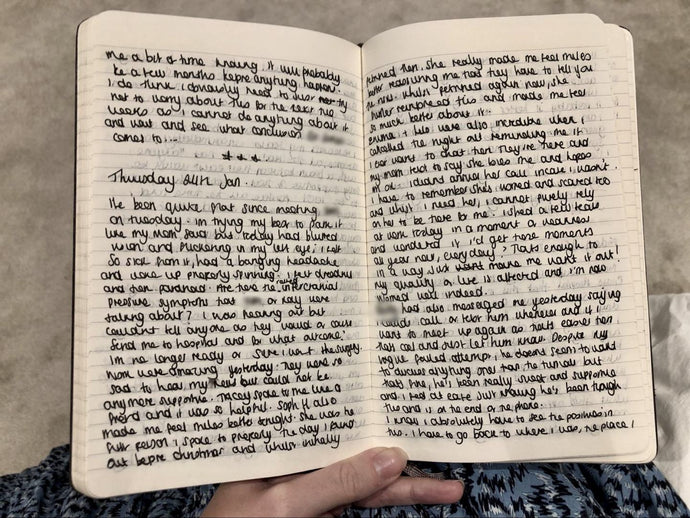 me a bit of time knowing it will probably
be a few months before anything happens.
I do think I obviously need to just try
not to worry about this for the next few
weeks as I cannot do anything about it
and wait and see what conclusion
comes to...
***
Thursday 24th Jan.
I've been quite flat since meeting
on Tuesday. I'm trying my best to park it
like my mom said but today had blurred
vision and flickering in my left eye, I felt
so sick from it, had a banging headache
and woke up properly spinning. I felt dreadful
and then paranoid. Are these the raised intercranial
pressure symptoms that or Katy were
talking about? I was freaking out but
couldn't tell anyone as they would of course
send me to hospital and for what outcome?
I'm no longer ready or sure I want the surgery.
Work were amazing yesterday. They were so
sad to hear my news but could not be
anymore supportive. Tracey spoke to me like a
friend and it was so helpful. Soph H also
made me feel miles better tonight. She was the
first person I spoke to properly the day I found
out before Christmas and whilst initially
petrified then, she really made me feel miles
better reassuring me that they have to tell you
the risks. Whilst petrified again now, she
further reinforced this and made me feel
so much better about it.
Emma & Lib were also incredible when I
cancelled the night out reminding me if
I ever want to chat then they're here and
my mom text to say she loves me and hopes
I'm ok. I didn't answer her call incase I wasn't.
I have to remember she's worried and scared too
and whilst I need her, I cannot purely rely
on her to be there for me. I shed a few tears
at work today in a moment of weakness
and wondered if I'd get these moments
all year now, everyday? That's enough to
in a way just make me want it out!
My quality of life is affected and I'm now
worried well indeed.
had also messaged me yesterday saying
I could call or text him whenever and if I
want to meet up again as that's easier then
that's cool and just let him know. Despite my
vague failed attempt, he doesn't seem to want
to discuss anything other than the tumour but
that's fine, he's been really sweet and supportive
and I feel at ease just knowing he's been through
this and is on the end of the phone.
I know I absolutely have to see the positives in
this. I have to go back to where I was, the place I